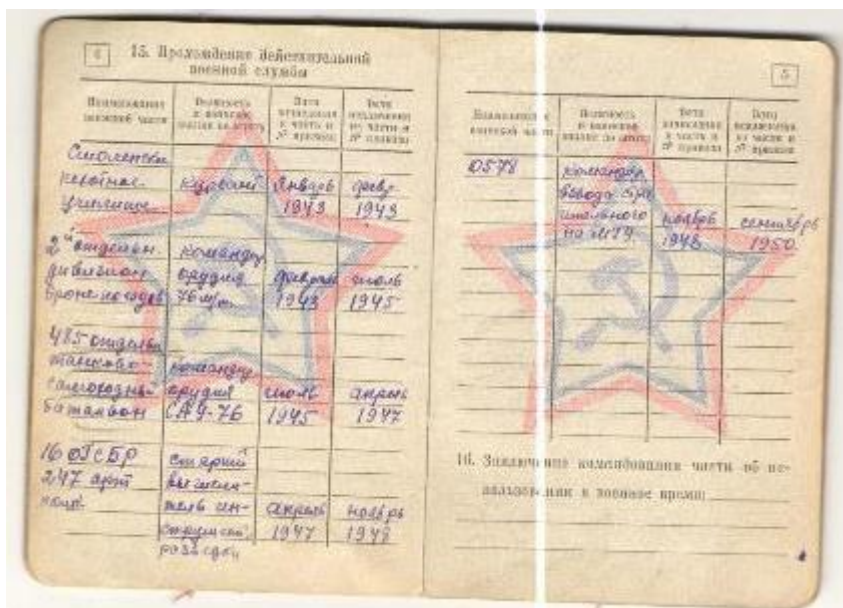 4
15. Прохождение действительной
военной службы
Наименование
воинской части
Должность
и воинское
звание по штату
Дата
зачисления
в часть и
№ приказа
Дата
исключения
из части и
№ приказа
Смоленское
пехотное
училище
курсант
январь
1943
февр
1943
2й отдельн.
дивизион
бронепоездов
командир
орудия
76 м/м
февраль
1943
июль
1945
485
танково-
самоходный
батальон
командир
орудия
САУ-76
июль
1945
апрель
1947
247 арт
старший
апрель
1947
ноябрь
1948
5
Наименование
воинской части
Должность
и воинское
звание по штату
Дата
зачисления
в часть и
№ приказа
Дата
исключения
из части и
№ приказа
0578
командир
взвода
ноябрь
1948
сентябрь
1950
16. Заключение командования части об ис-
пользовании в военное время: